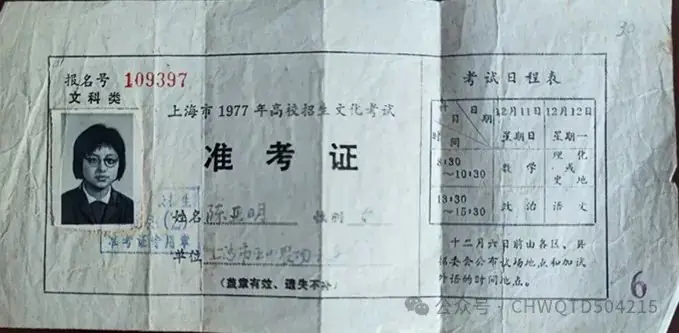 报名号 109397
文科类
上海市1977年高校招生文化考试
准考证
姓名 陈亚明 性别 女
单位 上海市
准考证专用章
(盖章有效、遗失不补)
30
考试日程表
日期 科目 时间 12月11日 星期日 12月12日 星期一
8:30~10:30 数学 理化或史地
13:30~15:30 政治 语文
十二月六日前由各区、县
招委会公布试场地点和加试
外语的时间地点。
6
公众号·CHWQTD504215